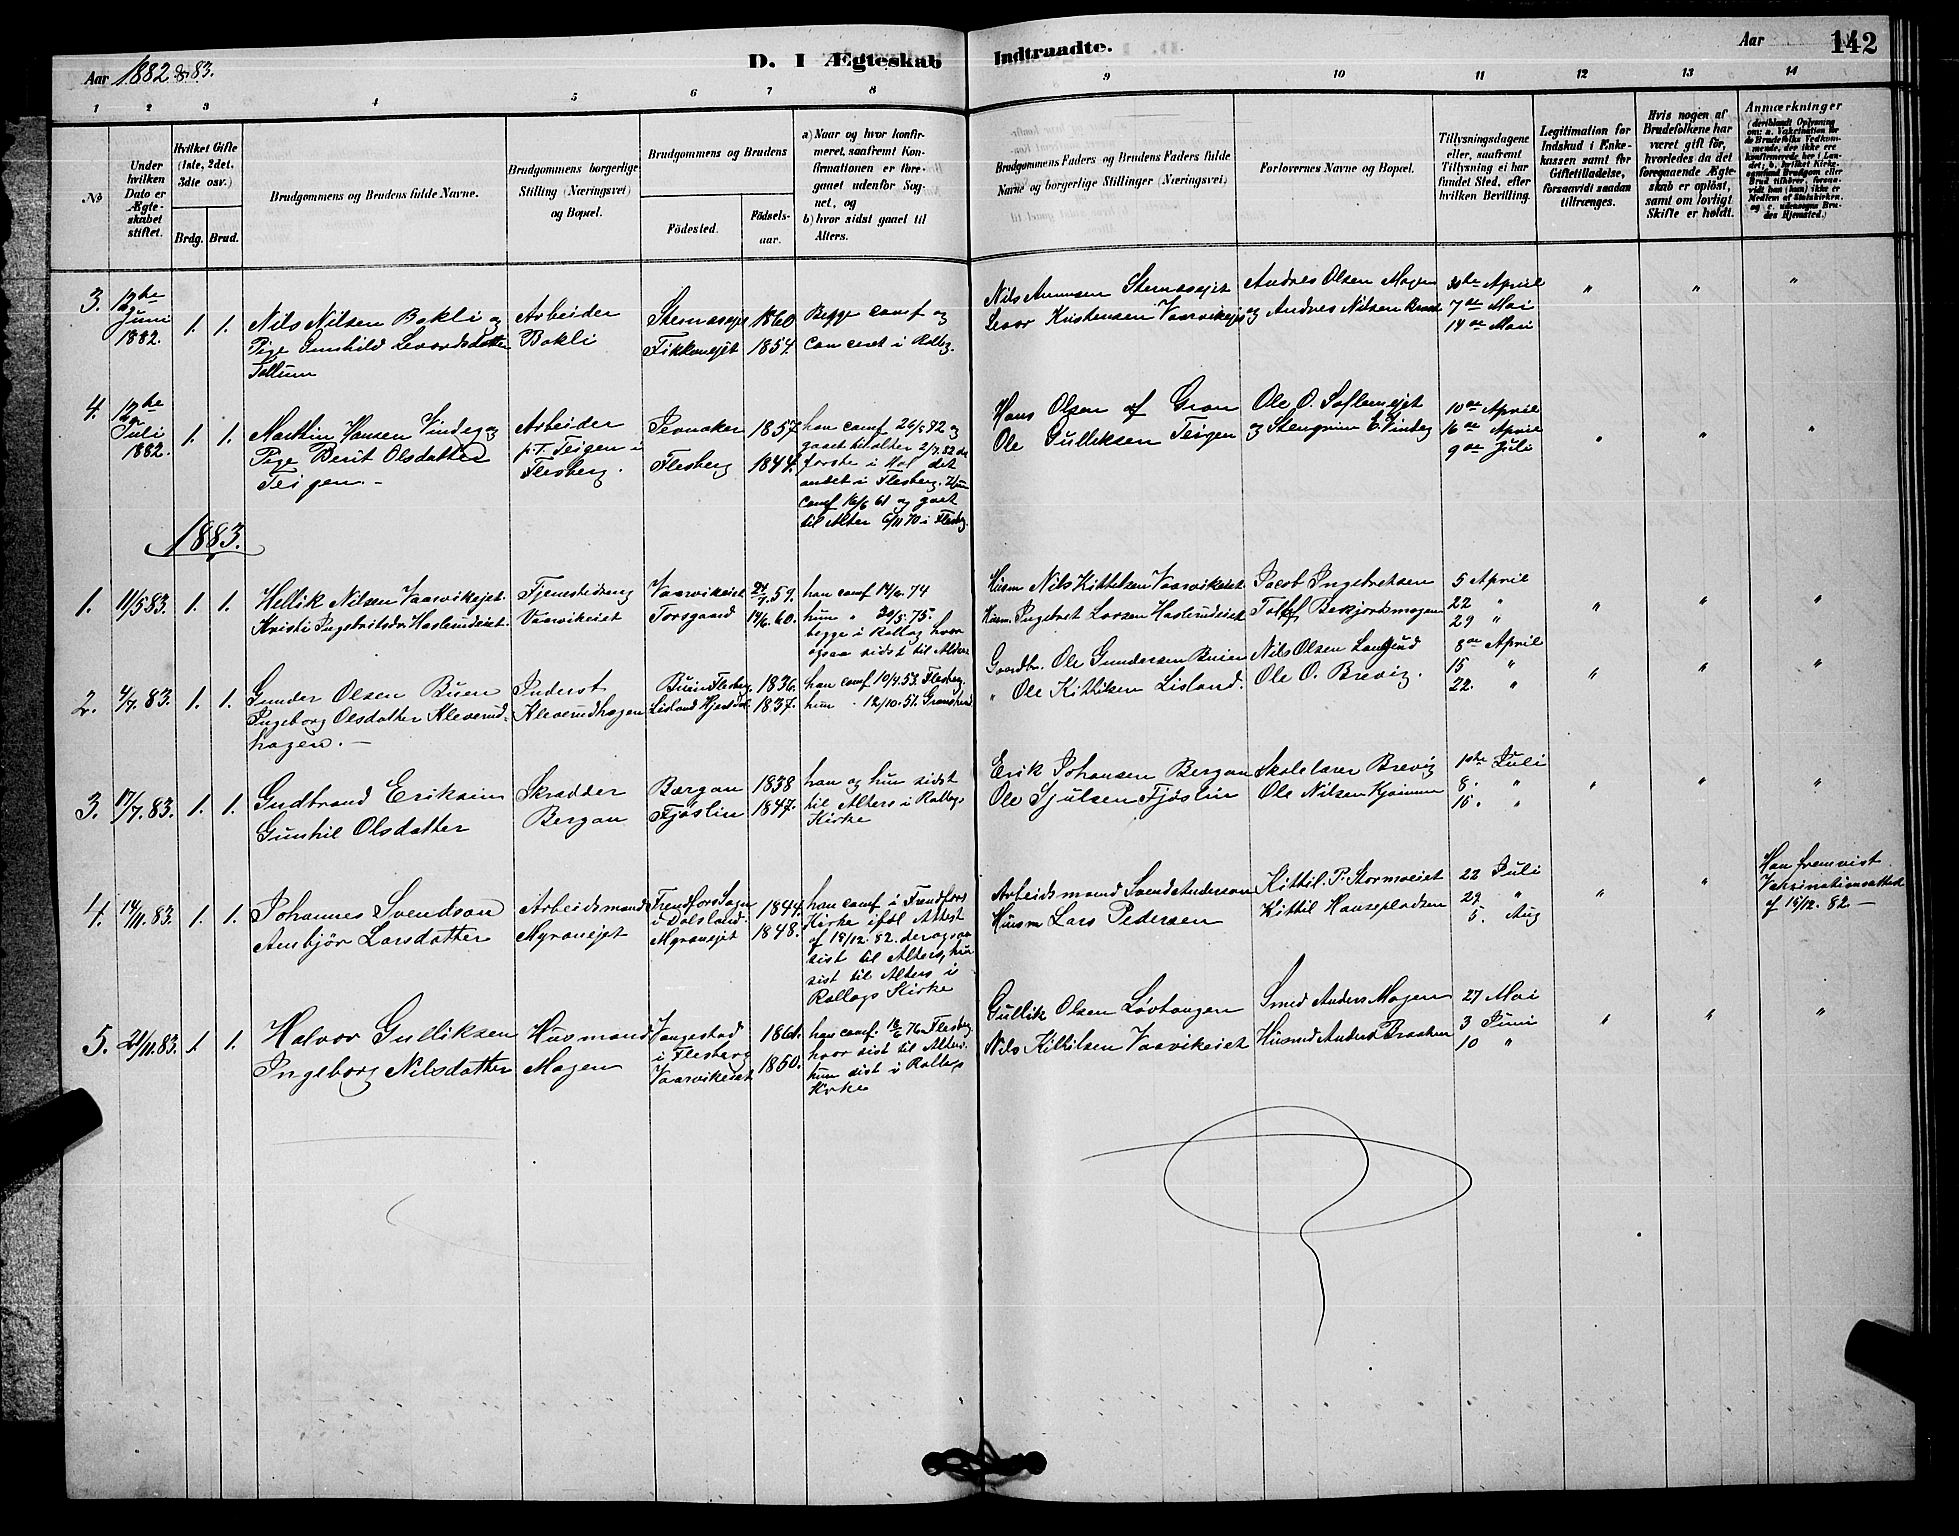 Aar 1882 & 83.
D. I Ægteskab
Indtraadte.
Aar
142
1 2 3 4 5 6 7 8 9 10 11 12 13 14
No
Under hvilken Dato er Ægteskabet stiftet.
Hvilket Gifte (1ste, 2det, 3die osv.)
Brdg. Brud.
Brudgommens og Brudens fulde Navne.
Brudgommens borgerlige Stilling (Næringsvei) og Bopæl.
Brudgommens og Brudens
Födested.
Födselsaar.
a) Naar og hvor konfirmeret, saafremt Konfirmationen er foregaaet udenfor Sognet, og
b) hvor sidst gaaet til Alters.
Brudgommens Faders og Brudens Faders fulde Navne og borgerlige Stillinger (Næringsvei)
Forlovernes Navne og Bopæl.
Tillysningsdagene eller, saafremt Tillysning ei har fundet Sted, efter hvilken Bevilling.
Legitimation for Indskud i Enkekassen samt for Giftetilladelse, forsaavidt saadan tiltrænges.
Hvis nogen af Brudefolkene har været gift för, hvorledes da det foregaaende Ægteskab er oplöst, samt om lovligt Skifte er holdt.
Anmærkninger
3. 12te Juni 1882. 1. 1.
Nils Nilsen Bakli og
Pige Gunhild Levordsdatter
Tollum
Arbeider
Bakli
1860
Fikkanejet 1854.
Begge conf og
i Rollag.
Nils
Levor Kristensen Vaarvikejet
Andres Olsen Mogen
og Andres Nilsen
30te April
7de Mai
14de Mai
4. 12te Juli 1882. 1. 1.
Martin Hansen Vindeg og
Pige Berit Olsdatter
Teigen.
Arbeider
p.T. Teigen i
Flesberg.
Jevnaker 1857.
Flesberg 1844.
han conf 26/5 72 og
gaaet til alter 2/7 82 det
første i Hol det
andet i Flesberg. Hun
conf 16/6 61 og gaaet
til Alter 6/11 70 i Flesberg.
Hans Olsen af Gran
Ole Gulliksen Teigen
Ole O.
og Stengrim E. Vindeg
10de April
16de April
9de Juli
1883.
1. 11/5 83. 1. 1.
Hellik Nilsen Vaarvikejet.
Kristi Ingebritsdr Haslerudeiet.
Tjenestedreng
Vaarvikeiet
Vaarvikeiet
Torsgaard 60.
han conf 14/6 74
hun " 30/5. 75.
begge i Rollag hvor
ogsaa sidst til Alters
Husm Nils Kittilsen Vaarvikeiet
Husm. Ingebret Larsen Haslerudeiet
Jacob Ingebretsen
Tollef Bekjordsmogen
5 April
22 "
29 "
2. 4/7. 83. 1. 1.
Gunder Olsen Buen
Ingeborg Olsdatter Kleverud-
hagen.
Inderst
Kleverudhagen
Buin Flesberg. 1836.
Lisland Hjertdal. 1837.
han conf 10/4. 53. Flesberg.
hun " 12/10. 51.
Gaardbr. Ole Gundersen Buien
" Ole Kittilsen Lisland.
Nils Olsen
Ole O. Brevig.
8de April
15 "
22. "
3. 17/7. 83. 1. 1.
Gudbrand Eriksen
Gunhil Olsdatter
Skrædder
Bergan
Bergan 1838
Fjøslin 1847.
han og hun sidst
til Alters i Rollags
Kirke
Erik Johansen Bergan
Ole Sjulsen Fjøslin
Skolelærer Brevig
Ole Nilsen
1ste Juli
8. "
15. "
4. 14/11. 83. 1. 1.
Johannes Svendson
Ambjør Larsdatter
Arbeidsmand
Myranejet
Sogn 1844.
i Dalsland.
Myranejet 1848.
han conf i
Kirke iføl Attest
af 18/12. 82. der ogsaa
sist til Alters, hun
sist til Alters i
Rollags Kirke
Arbeidsmand Svend Anderson
Husm Lars Pedersen
Kittil. P. Stormoeiet
Kittil Hansepladsen
22 Juli
29 "
5. Aug
Han fremvist
Vaksinationsattest
af 18/12. 82.
5. 21/11. 83. 1. 1.
Halvor Gulliksen
Ingeborg Nilsdatter
Husmand
Mogen
Vangestad 1861.
i Flesberg
Vaarvikeiet 1860.
han conf. 76 Flesberg
hvor sist til Alters
hun sist i Rollags
Kirke
Gullik Olsen Løvtangen
Nils Kittilsen Vaarvikeiet
Smed Anders Mogen
Husmd Anders Braaten
27 Mai
3 Juni
10 "